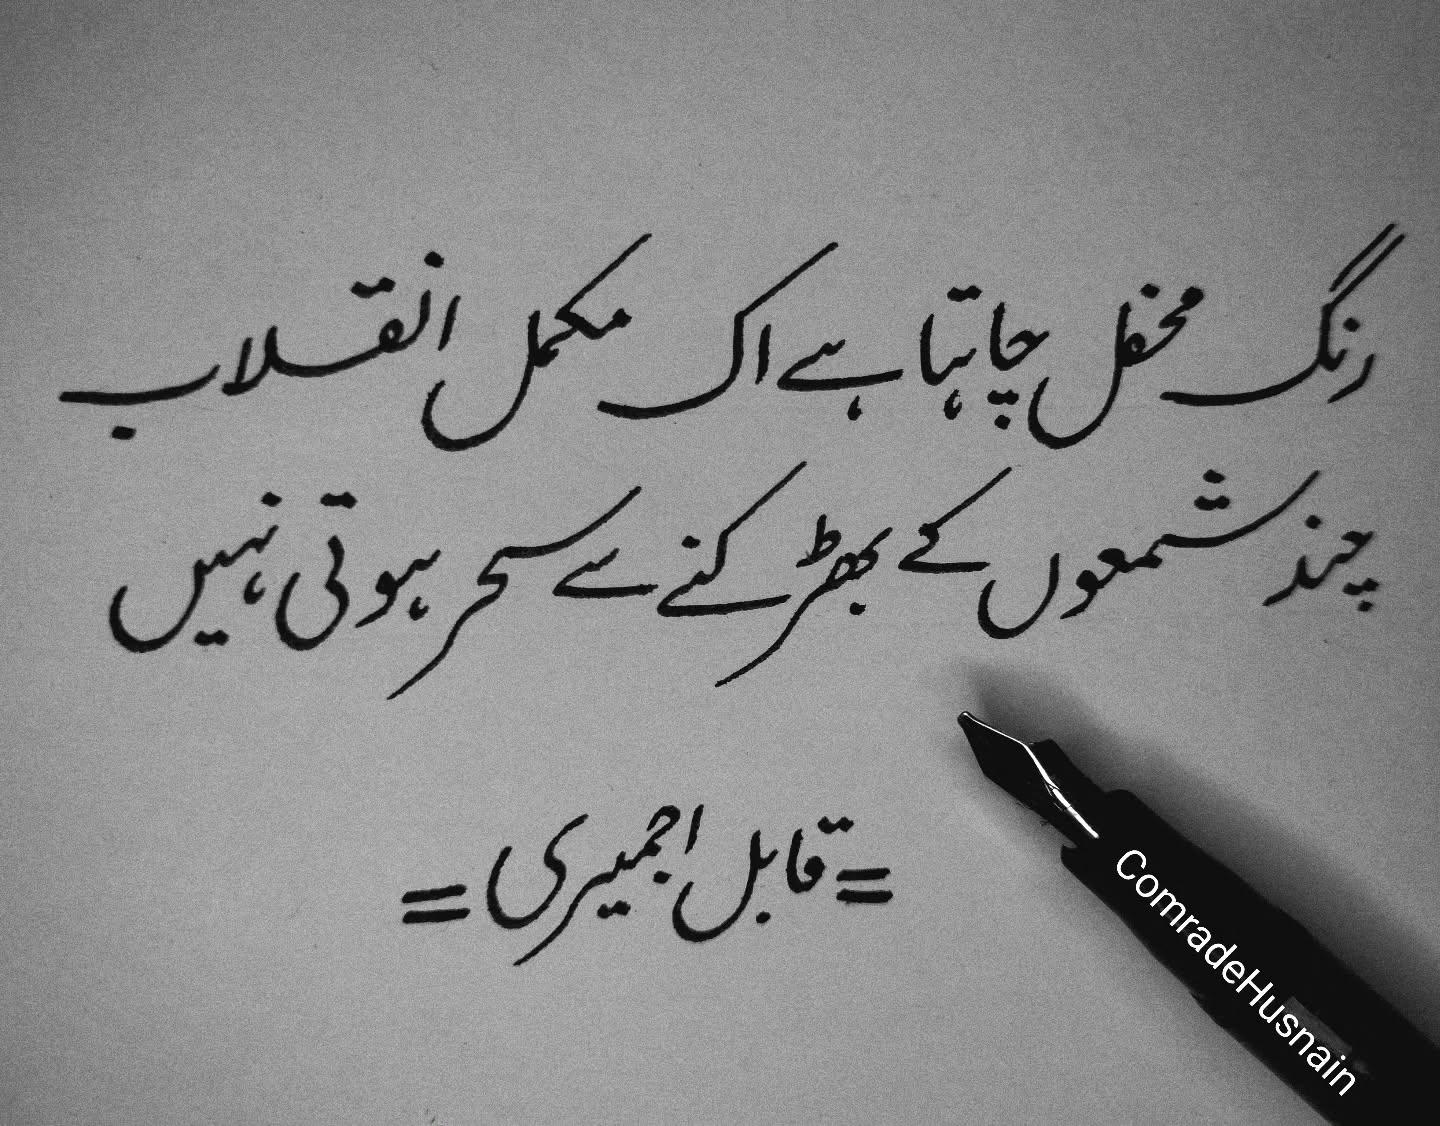 رنگ محفل چاہتا ہے اک مکمل انقلاب
چند شمعوں کے بھڑکنے سے سحر ہوتی نہیں
= قابل اجمیری =
ComradeHusnain